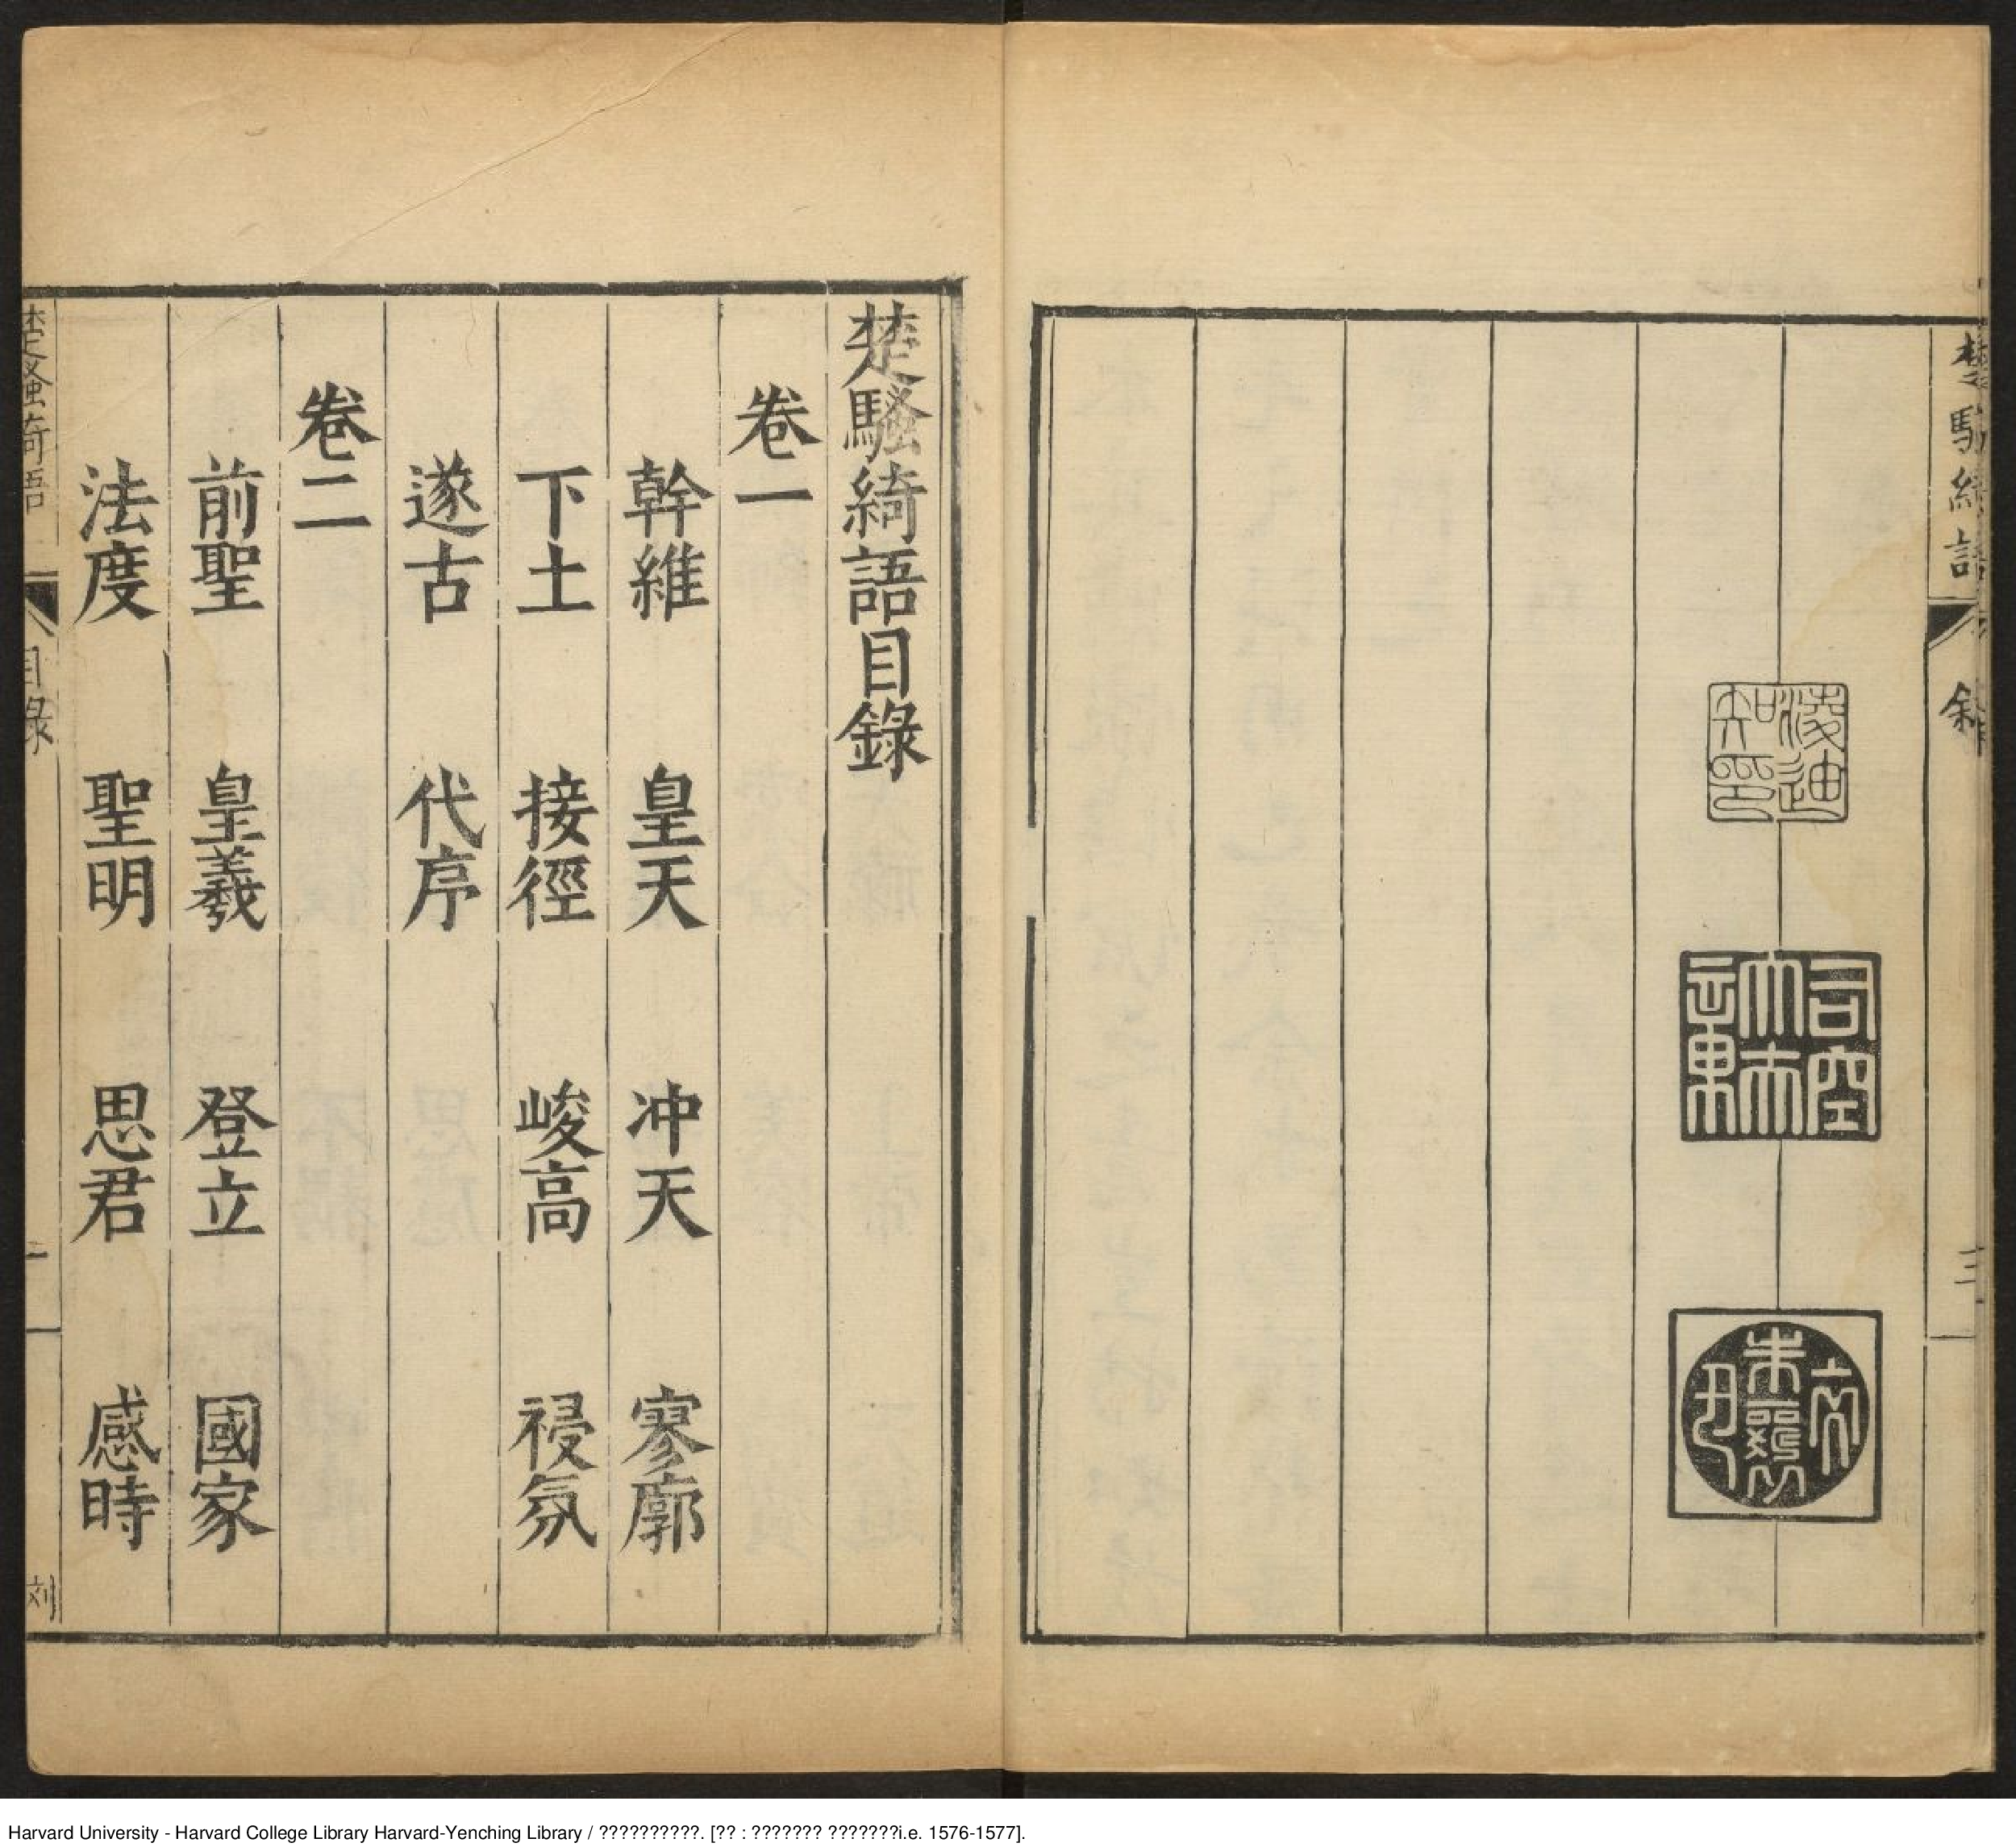 楚騷綺語
叙
三
凌迪
知印
司空
大夫
朱鷺
楚騷綺語目錄
卷一
幹維 皇天 冲天 寥廓
下土 接徑 峻高 祲氛
遂古 代序
卷二
前聖 皇羲 登立 國家
法度 聖明 思君 感時
楚騷綺語
目錄
一
刘
Harvard University - Harvard College Library Harvard-Yenching Library / ??????????. [?? : ??????? ???????i.e. 1576-1577].